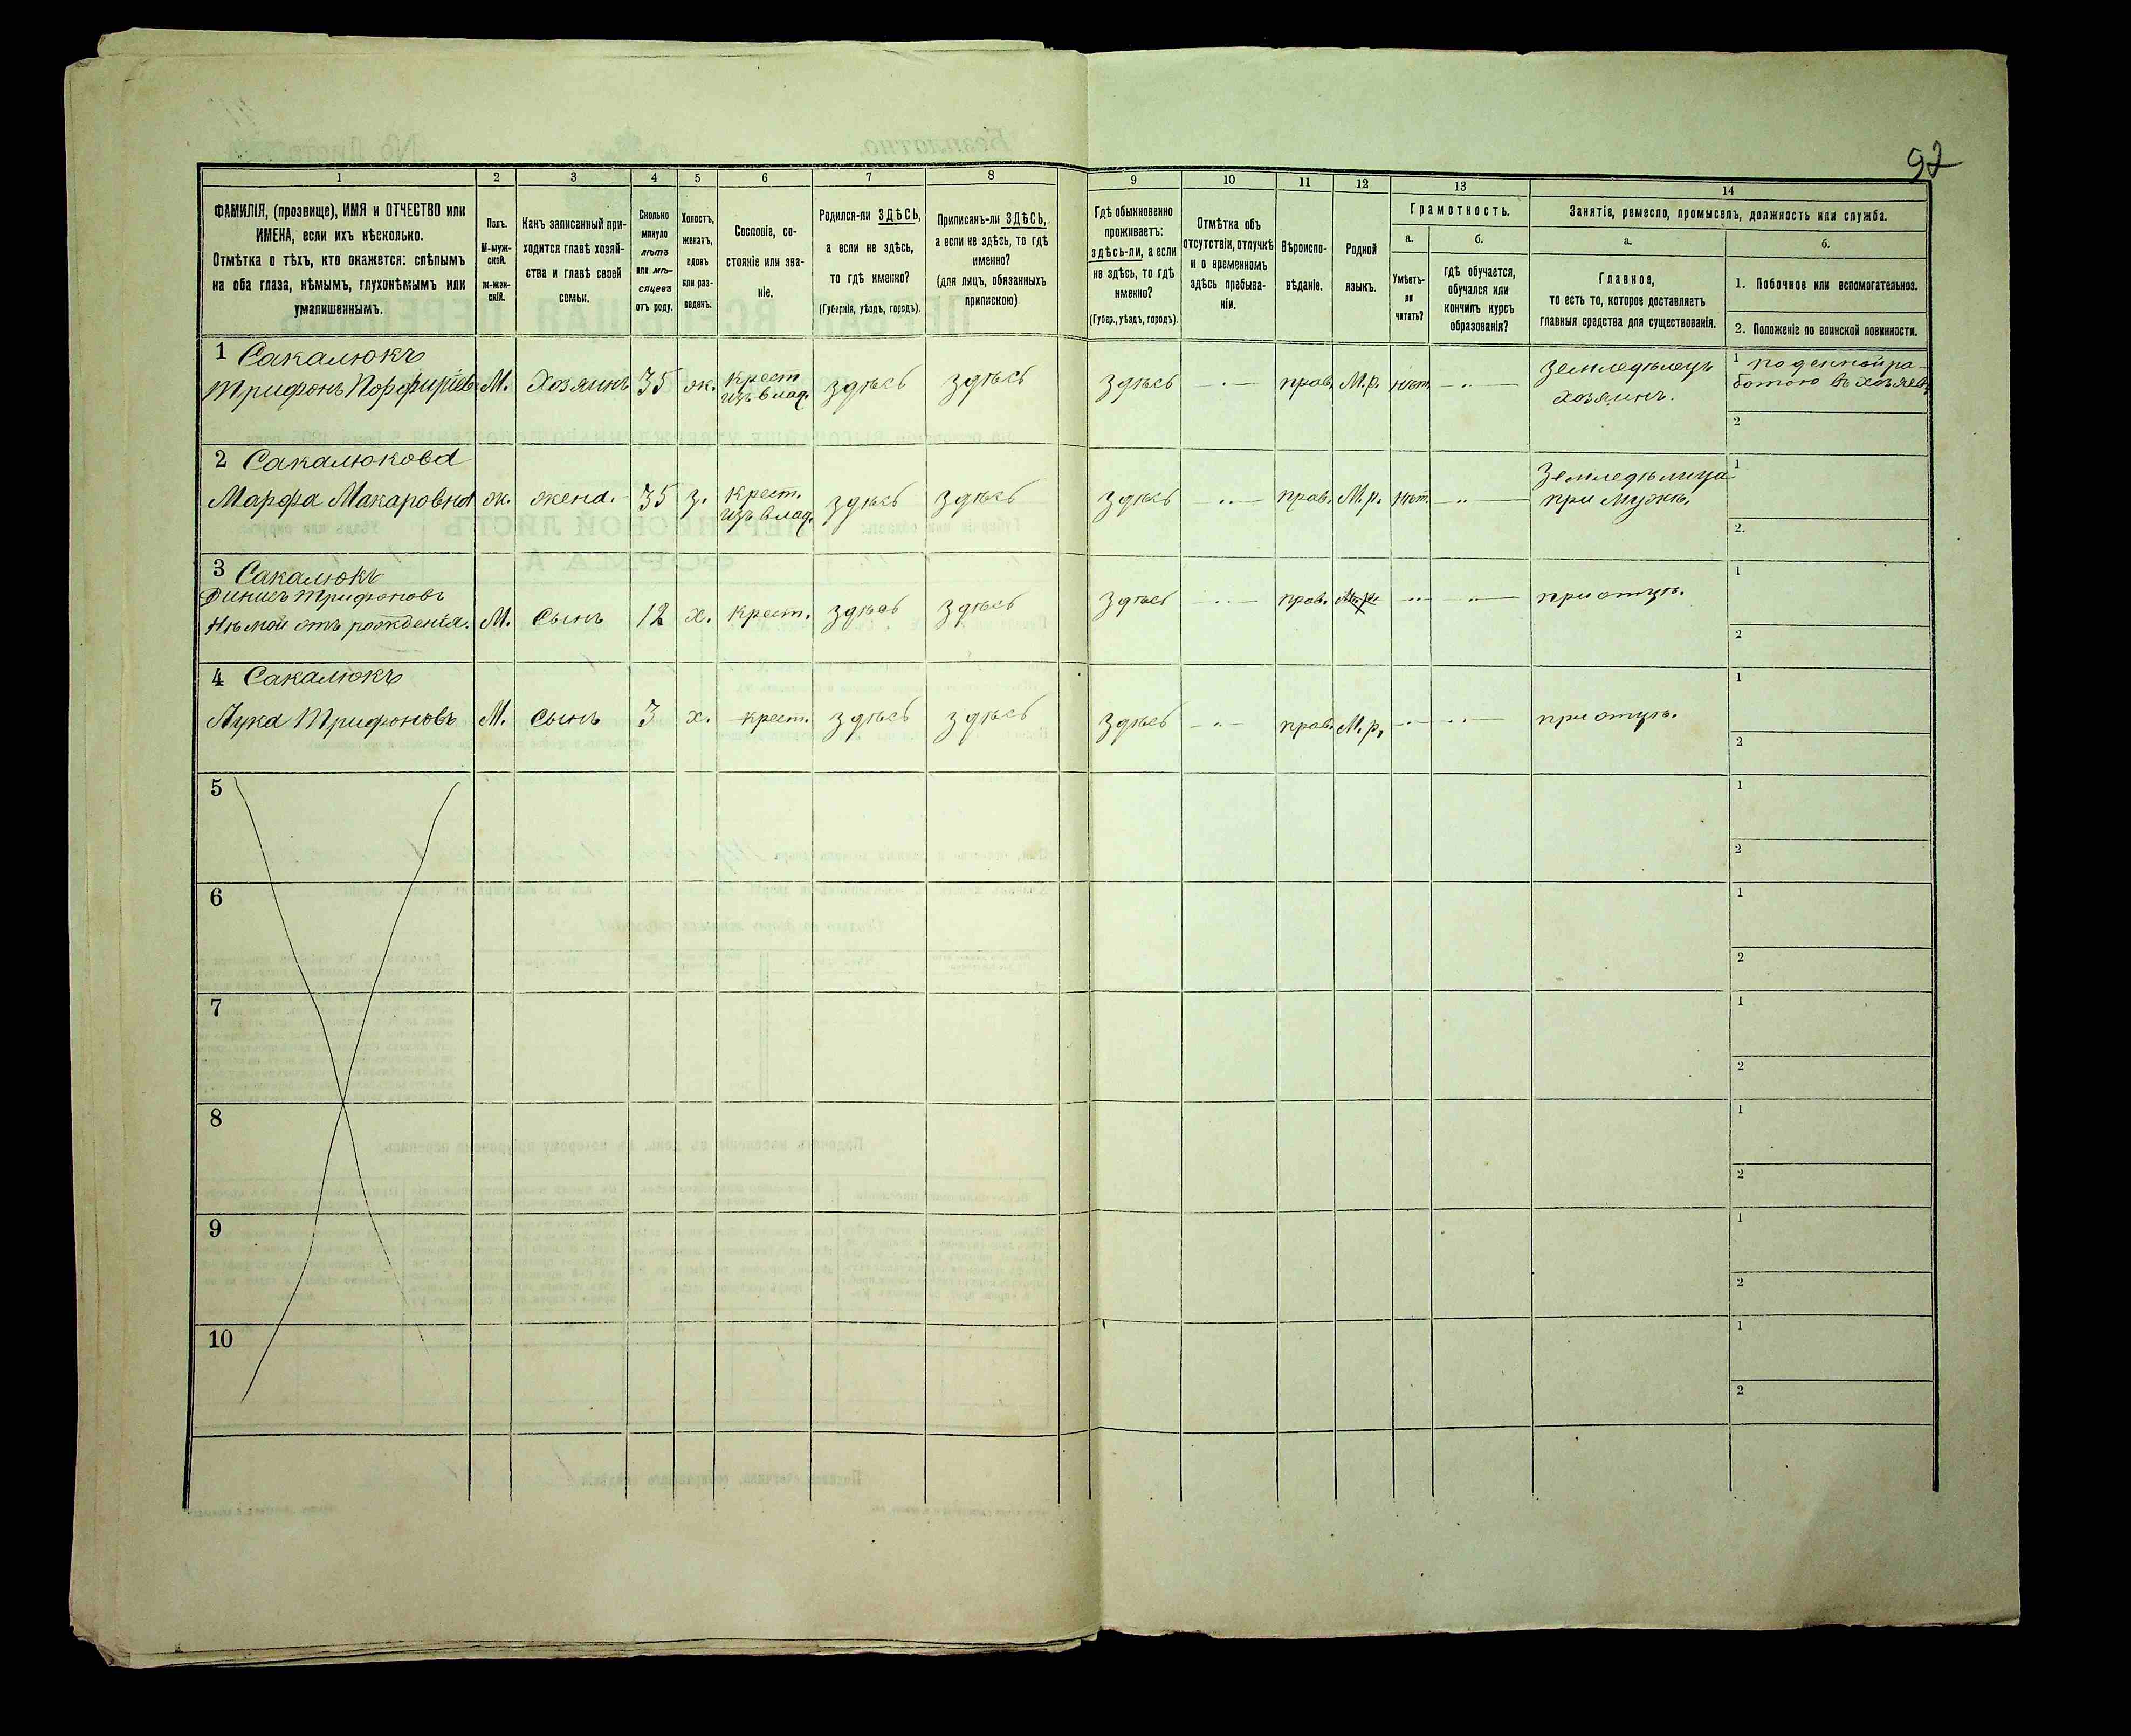 92
1 2 3 4 5 6 7 8 9 10 11 12 13 14
ФАМИЛІЯ, (прозвище), ИМЯ и ОТЧЕСТВО или
ИМЕНА, если ихъ нѣсколько.
Отмѣтка о тѣхъ, кто окажется: слѣпымъ
на оба глаза, нѣмымъ, глухонѣмымъ или
умалишеннымъ.
Полъ.
М-муж-
ской.
ж-жен-
скій.
Какъ записанный при-
ходится главѣ хозяй-
ства и главѣ своей
семьи.
Сколько
минуло
лѣтъ
или мѣ-
сяцевъ
отъ роду.
Холостъ,
женатъ,
вдовъ
или раз-
веденъ.
Сословіе, со-
стояніе или зва-
ніе.
Родился-ли ЗДѢСЬ,
а если не здѣсь,
то гдѣ именно?
(Губернія, уѣздъ, городъ).
Приписанъ-ли ЗДѢСЬ,
а если не здѣсь, то гдѣ
именно?
(для лицъ, обязанныхъ
припискою)
Гдѣ обыкновенно
проживаетъ:
здѣсь-ли, а если
не здѣсь, то гдѣ
именно?
(Губер., уѣздъ, городъ).
Отмѣтка объ
отсутствіи, отлучкѣ
и о временномъ
здѣсь пребыва-
ніи.
Вѣроиспо-
вѣданіе.
Родной
языкъ.
Грамотность.
а.
Умѣетъ-
ли
читать?
б.
гдѣ обучается,
обучался или
кончилъ курсъ
образованія?
Занятіе, ремесло, промыселъ, должность или служба.
а.
Главное,
то есть то, которое доставляетъ
главныя средства для существованія.
б.
1. Побочное или вспомогательное.
2. Положеніе по воинской повинности.
1 Сакалюкъ
Трифонъ Порфирiев М. Хозяинъ 35 ж. Крест. изъ влад. здѣсь здѣсь здѣсь прав. М.р. нѣт. Земледѣлецъ
хозяинъ.
1 поденной ра-
ботою въ хозяев.
2
2 Сакалюкова
Марфа Макаровна ж. жена. 35 з. Крест. изъ влад. здѣсь здѣсь здѣсь прав. М.р. нѣт. Земледѣлица
при мужѣ.
1
2.
3 Сакалюкъ
Динисъ Трифоновъ
Нѣмой отъ рожденія. М. Сынъ 12 х. Крест. здѣсь здѣсь здѣсь прав. М.р. при отцѣ.
1
2
4 Сакалюкъ
Лука Трифоновъ М. Сынъ 3 х. Крест. здѣсь здѣсь здѣсь прав. М.р. при отцѣ.
1
2
5 1
2
6 1
2
7 1
2
8 1
2
9 1
2
10 1
2